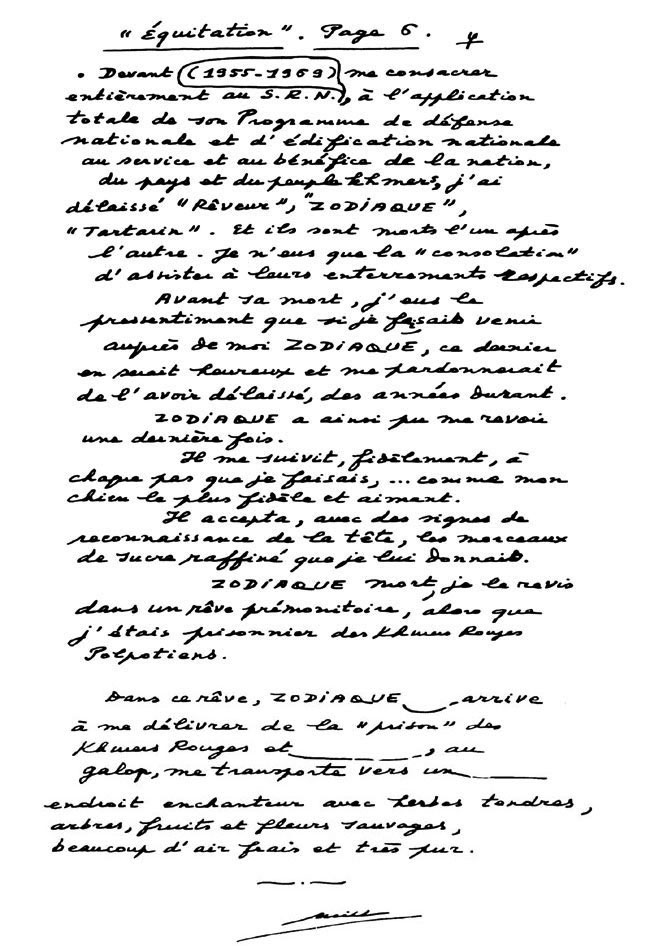 "Équitation". Page 6.
• Devant (1955-1969) me consacrer
entièrement au S.R.N., à l'application
totale de son Programme de défense
nationale et d'édification nationale
au service et au bénéfice de la nation,
du pays et du peuple khmers, j'ai
délaissé "Rêveur", "ZODIAQUE",
"Tartarin". Et ils sont morts l'un après
l'autre. Je n'eus que la "consolation"
d'assister à leurs enterrements respectifs.
Avant sa mort, j'eus le
pressentiment que si je fesais venir
auprès de moi ZODIAQUE, ce dernier
en serait heureux et me pardonnerait
de l'avoir délaissé, des années durant.
ZODIAQUE a ainsi pu me revoir
une dernière fois.
Il me suivit, fidèlement, à
chaque pas que je faisais, ... comme mon
chien le plus fidèle et aimant.
Il accepta, avec des signes de
reconnaissance de la tête, les morceaux
de sucre raffiné que je lui donnais.
ZODIAQUE mort, je le revis
dans un rêve prémonitoire, alors que
j'étais prisonnier des Khmers Rouges
Polpotiens.
Dans ce rêve, ZODIAQUE arrive
à me délivrer de la "prison" des
Khmers Rouges et, au
galop, me transporte vers un
endroit enchanteur avec herbes tendres,
arbres, fruits et fleurs sauvages,
beaucoup d'air frais et très pur.